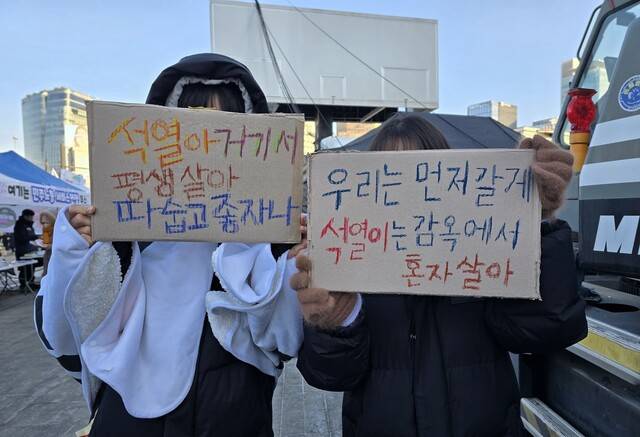 석열아 거기서
평생살아
따숩고좋자나
우리는 먼저갈게
석열이는감옥에서
혼자살아
여기는
M